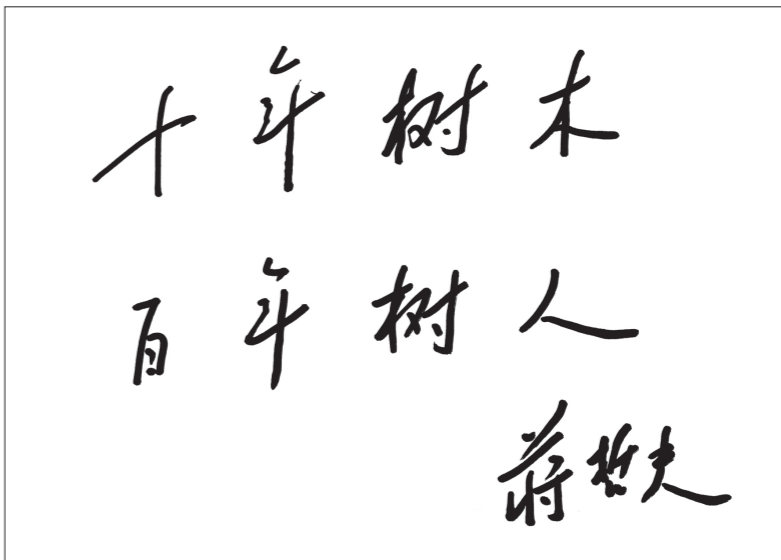 十年树木
百年树人
蒋哲夫